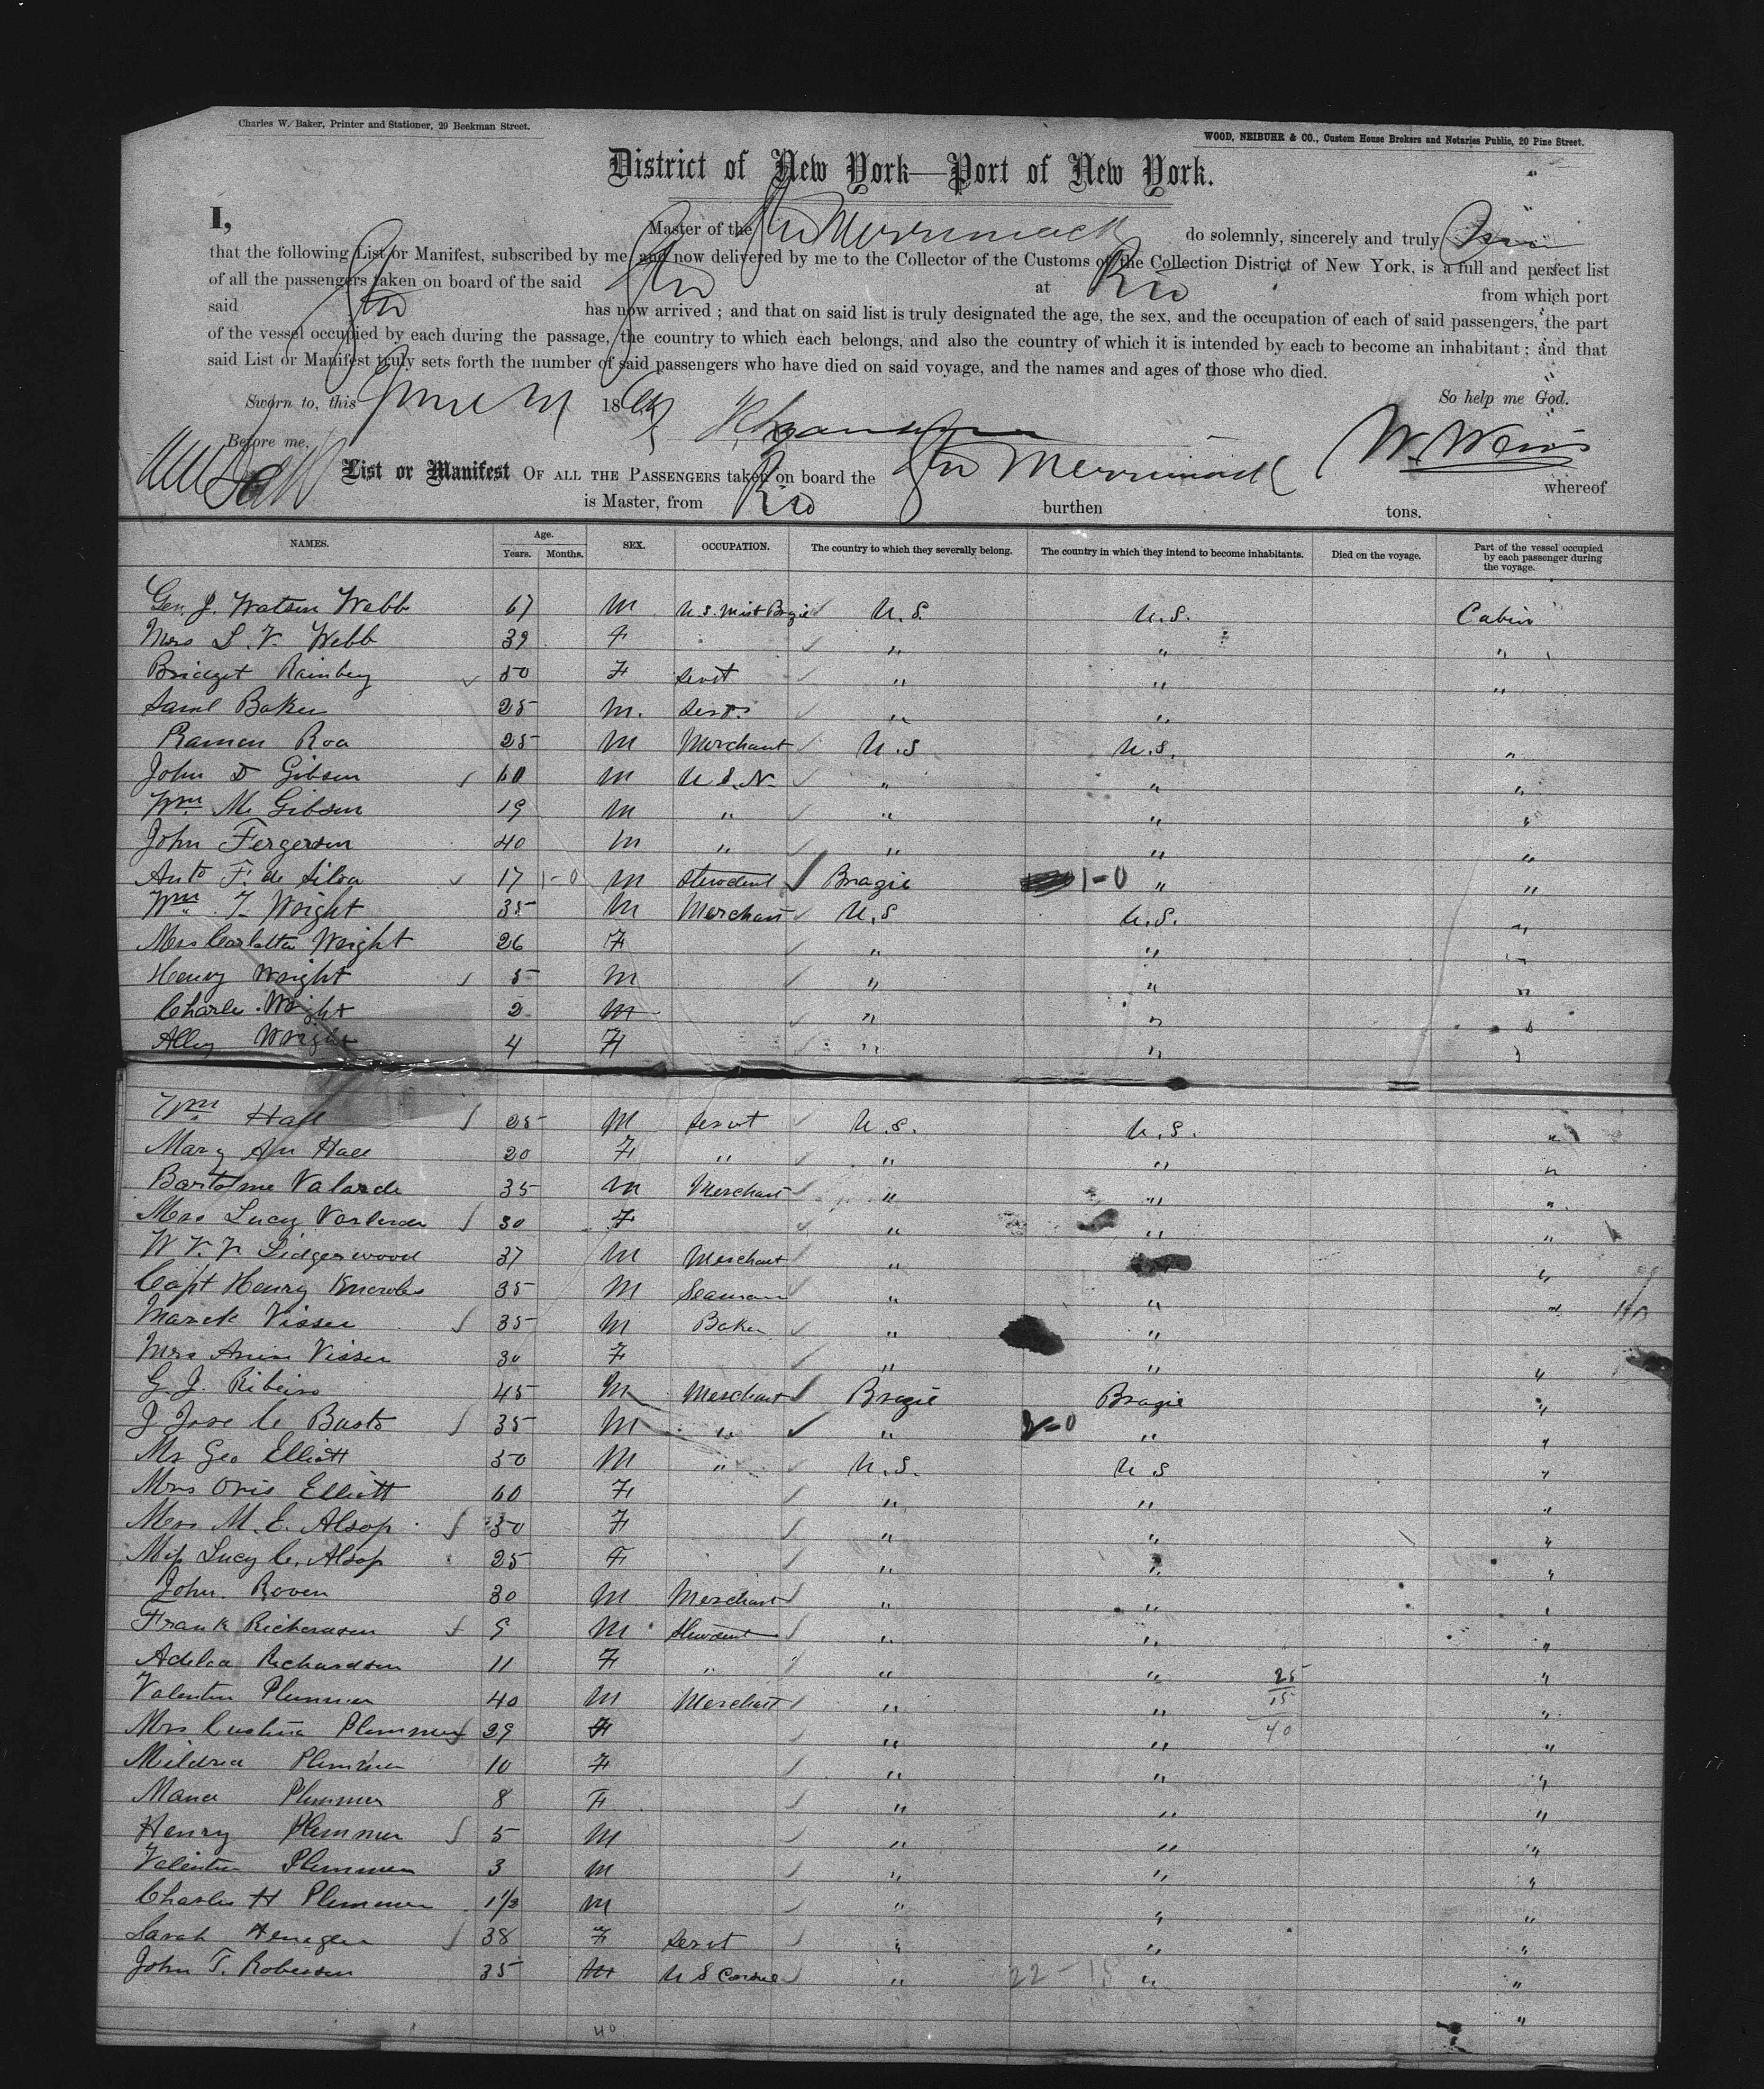 Charles W. Baker, Printer and Stationer, 29 Beekman Street.
WOOD, NEIBUHR & CO., Custom House Brokers and Notaries Public, 20 Pine Street.
District of New York—Port of New York.
I, Master of the Str Merrimack do solemnly, sincerely and truly
that the following List or Manifest, subscribed by me, and now delivered by me to the Collector of the Customs of the Collection District of New York, is a full and perfect list
of all the passengers taken on board of the said Str at Rio from which port
said Str has now arrived ; and that on said list is truly designated the age, the sex, and the occupation of each of said passengers, the part
of the vessel occupied by each during the passage, the country to which each belongs, and also the country of which it is intended by each to become an inhabitant ; and that
said List or Manifest truly sets forth the number of said passengers who have died on said voyage, and the names and ages of those who died.
Sworn to, this June 186 So help me God.
Before me,
List or Manifest OF ALL THE PASSENGERS taken on board the Str Merrimack whereof
is Master, from Rio burthen tons.
NAMES. Age. Years. Months. SEX. OCCUPATION. The country to which they severally belong. The country in which they intend to become inhabitants. Died on the voyage. Part of the vessel occupied by each passenger during the voyage.
Gen. J. Watson Webb 67 M U.S. Mist Brazil U.S. U.S. Cabin
Mrs L. V. Webb 39 F " " "
Bridget 50 F Servt " " "
Saml Baker 25 M. Servt " "
Ramon Roa 25 M Merchant U.S U.S. "
John D Gibson 60 M U.S.N. " " "
Wm M. Gibson 19 M " " " "
John Fergerson 40 M " " " "
Anto F. de Silva 17 1-0 M Student Brazil 1-0 " "
Wm T. Wright 35 M Merchant U.S U.S. "
Mrs Carlotta Wright 26 F " " "
Henry Wright 5 M " " "
Charles Wright 2 M " " "
Alley Wright 4 F " " "
Wm Hall 25 M Servt U.S. U.S. "
Mary An Hall 20 F " " " "
Bartolme Valarde 35 M Merchant " " "
Mrs Lucy 30 F " " "
W. V. V. Lidgerwood 37 M Merchant " "
Capt Henry Knowles 35 M Seaman " " "
Marck Visser 35 M Baker " "
Mrs Visser 30 F " " "
G J. Ribeiro 45 M Merchant Brazil Brazil "
J Jose C. Basto 35 M " " 2-0 " "
Mr Geo Elliott 50 M " U.S. U S "
Mrs Elliott 60 F " " "
Mrs M. E. Alsop 30 F " " "
Miss Lucy C. Alsop 25 F " " "
John Roven 30 M Merchant " " "
Frank Richardson 9 M Student " " "
Adelia Richardson 11 F " " " 25 "
Valentin Plummer 40 M Merchant " " 15 "
Mrs Plummer 29 F " " 40 "
Mildred Plummer 10 F " " "
Plummer 8 F " " "
Henry Plummer 5 M " " "
Valentin Plummer 3 M " " "
Charles H Plummer 1 1/2 M " " "
Sarah 38 F Servt " " "
John T. Roberson 35 M U S " 22-15 " "
"
40